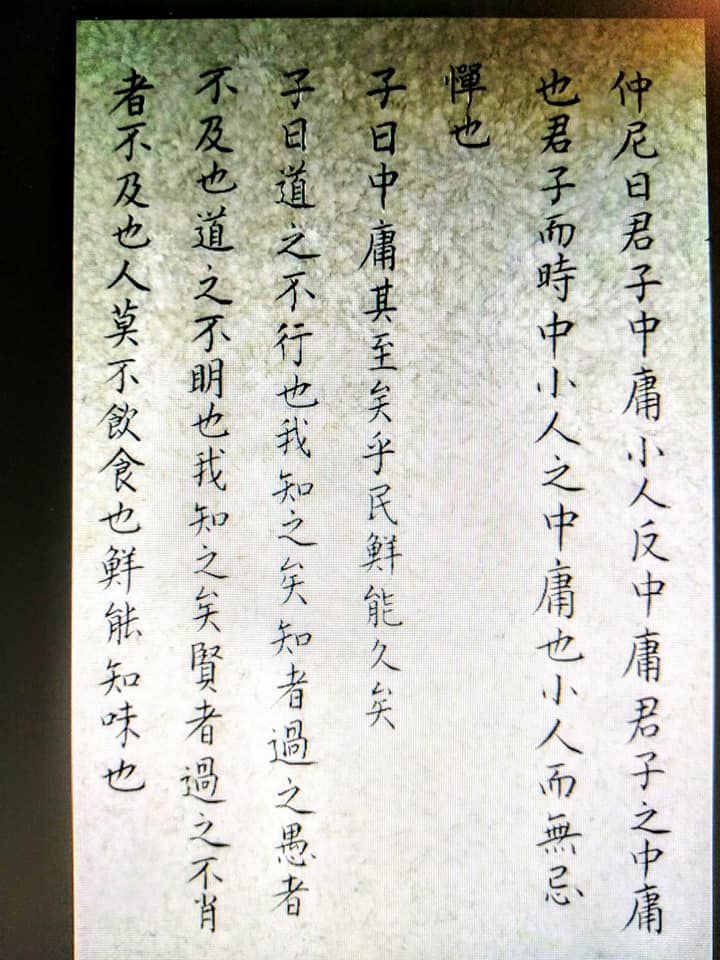 仲尼曰君子中庸小人反中庸君子之中庸
也君子而時中小人之中庸也小人而無忌
憚也
子曰中庸其至矣乎民鮮能久矣
子曰道之不行也我知之矣知者過之愚者
不及也道之不明也我知之矣賢者過之不肖
者不及也人莫不飲食也鮮能知味也